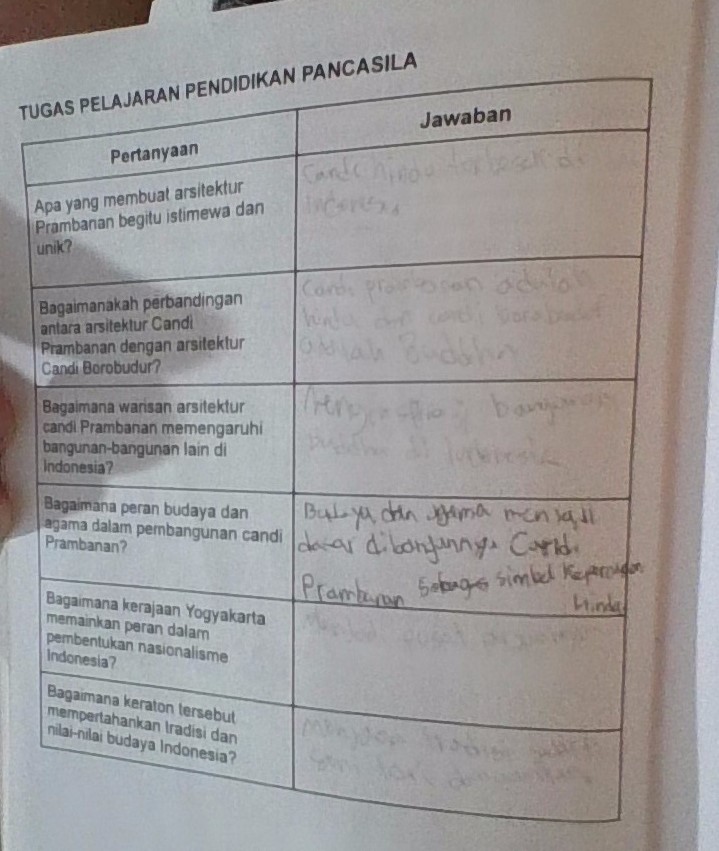 TUGAS PELAJARAN PENDIDIKAN PANCASILA
Pertanyaan
Jawaban
Apa yang membuat arsitektur
Prambanan begitu istimewa dan
unik?
Candi hindu terbesar di
Indonesia
Bagaimanakah perbandingan
antara arsitektur Candi
Prambanan dengan arsitektur
Candi Borobudur?
Candi prambanan adalah
hindu dan candi borobudur
adalah Buddha
Bagaimana warisan arsitektur
candi Prambanan memengaruhi
bangunan-bangunan lain di
Indonesia?
bangunan
di Indonesia
Bagaimana peran budaya dan
agama dalam pembangunan candi
Prambanan?
Budaya dan agama menjadi
dasar dibangunnya Candi
Prambanan Sebagai simbol Kepercayaan
Hindu
Bagaimana kerajaan Yogyakarta
memainkan peran dalam
pembentukan nasionalisme
Indonesia?
Menjadi pusat
Bagaimana keraton tersebut
mempertahankan tradisi dan
nilai-nilai budaya Indonesia?
Menjaga tradisi
seni tari